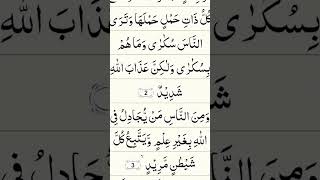 كُلُّ ذَاتِ حَمْلٍ حَمْلَهَا وَتَرَى
النَّاسَ سُكٰرٰى وَمَا هُمْ
بِسُكٰرٰى وَلٰكِنَّ عَذَابَ اللّٰهِ
شَدِيْدٌ 2
وَمِنَ النَّاسِ مَنْ يُّجَادِلُ فِى
اللّٰهِ بِغَيْرِ عِلْمٍ وَّيَتَّبِعُ كُلَّ
شَيْطٰنٍ مَّرِيْدٍ 3